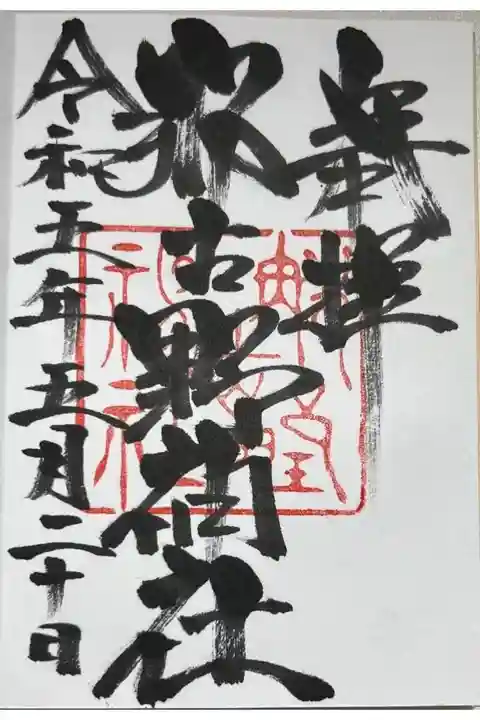 奉拝
那古野神社
令和五年五月二十日